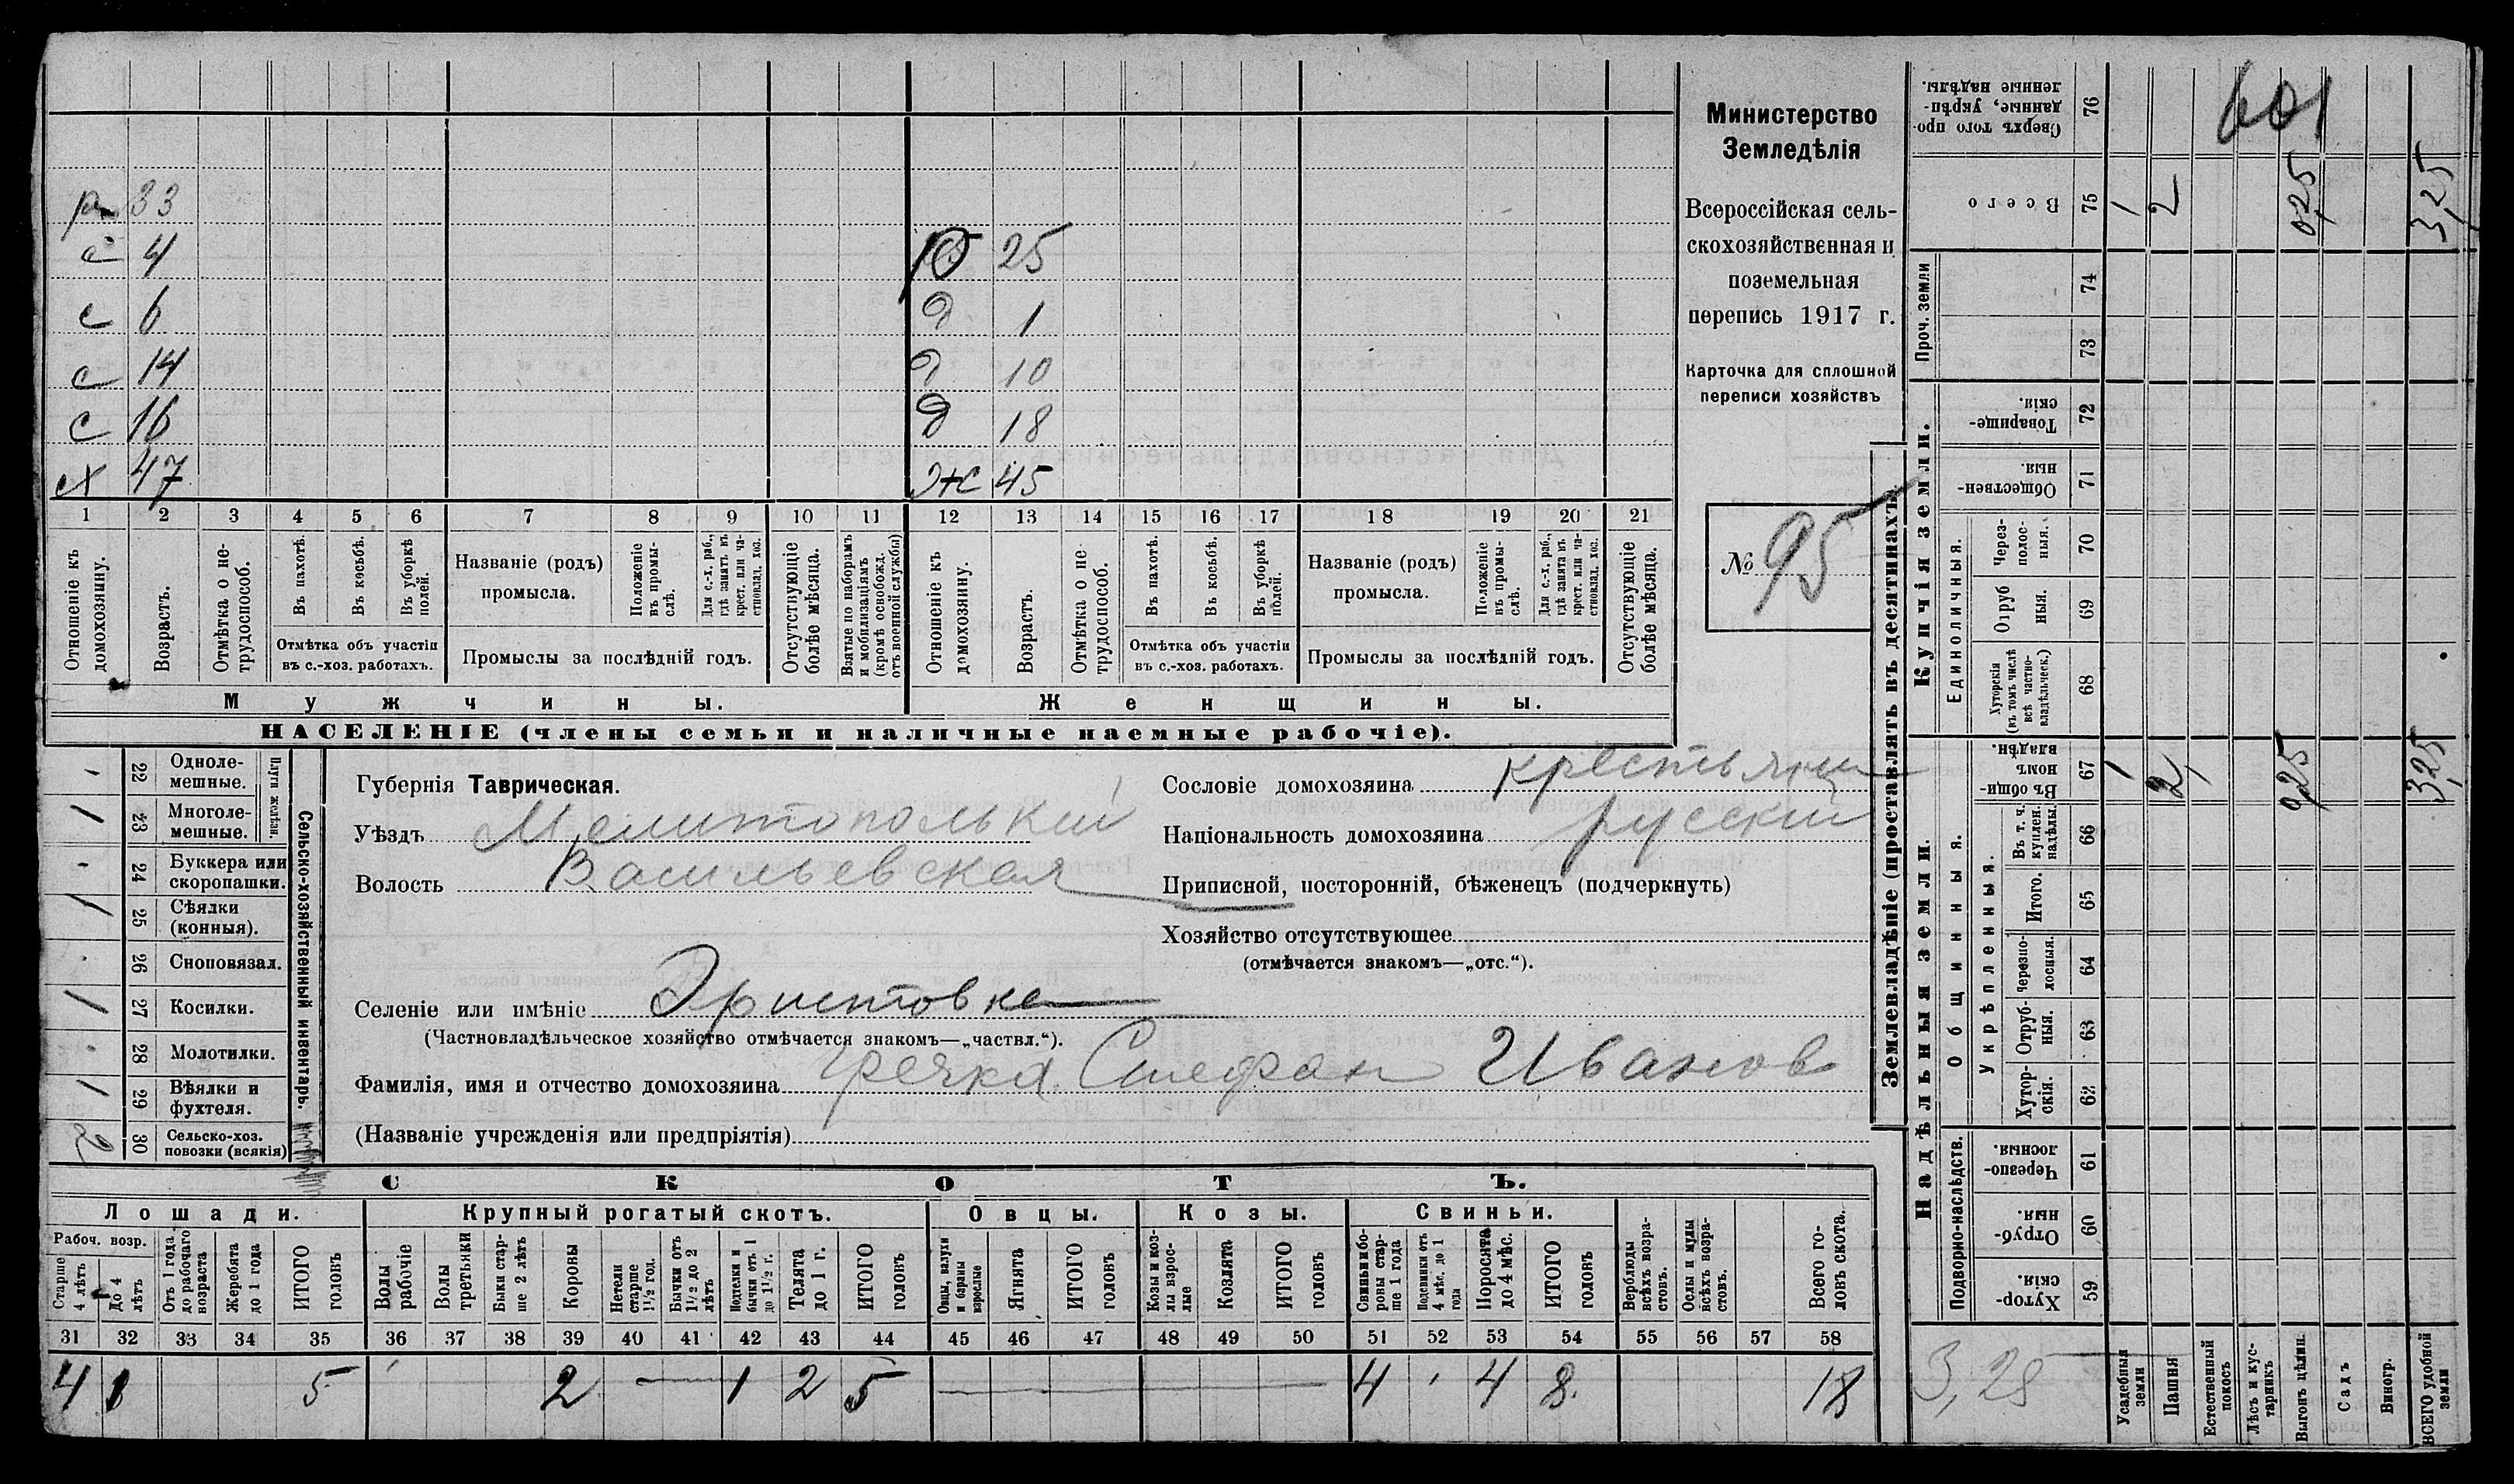 р 33
с 4
ю 25
с 6
д 1
с 14
д 10
с 16
д 18
сх 47
ж 45
1 2 3 4 5 6 7 8 9 10 11 12 13 14 15 16 17 18 19 20 21
Отношеніе къ домохозяину.
Возрастъ.
Отмѣтка о не-трудоспособ.
Въ пахотѣ.
Въ косьбѣ.
Въ уборкѣ полей.
Отмѣтка объ участіи
въ с.-хоз. работахъ.
Названіе (родъ)
промысла.
Положеніе въ промы-слѣ.
Для с.-х. раб., гдѣ занятъ въ крест. или ча-стновлад. хоз.
Промыслы за послѣдній годъ.
Отсутствующіе болѣе мѣсяца.
Взятые по наборамъ и мобилизаціямъ (кромѣ освобожд. отъ военной службы)
Отношеніе къ домохозяину.
Возрастъ.
Отмѣтка о не трудоспособ.
Въ пахотѣ.
Въ косьбѣ.
Въ уборкѣ полей.
Отмѣтка объ участіи
въ с.-хоз. работахъ.
Названіе (родъ)
промысла.
Положеніе въ промы-слѣ.
Для с.-х. раб., гдѣ занята въ крест. или ча-стновлад. хоз.
Промыслы за послѣдній годъ.
Отсутствующіе болѣе мѣсяца.
Мужчины.
Женщины.
НАСЕЛЕНІЕ (члены семьи и наличные наемные рабочіе).
Министерство
Земледѣлія
Всероссійская сель-
скохозяйственная и
поземельная
перепись 1917 г.
Карточка для сплошной
переписи хозяйствъ
№ 95
Сельско-хозяйственный инвентарь.
Плуги желѣзн.
22 Одноле-
мешные.
1 23 Многоле-
мешные.
24 Буккера или
скоропашки.
1 25 Сѣялки
(конныя).
26 Сноповязал.
1 27 Косилки.
28 Молотилки.
1 29 Вѣялки и
фухтеля.
2 30 Сельско-хоз.
повозки (всякія)
Губернія Таврическая.
Уѣздъ Мелитопольский
Волость Васильевская
Сословіе домохозяина крестьянин
Національность домохозяина русский
Приписной, посторонній, бѣженецъ (подчеркнуть)
Хозяйство отсутствующее
(отмѣчается знакомъ—„отс.“).
Селеніе или имѣніе Эристовка
(Частновладѣльческое хозяйство отмѣчается знакомъ—„частвл.“).
Фамилія, имя и отчество домохозяина Гречка Стефан Иванов
(Названіе учрежденія или предпріятія)
СКОТЪ.
Лошади.
Крупный рогатый скотъ.
Овцы.
Козы.
Свиньи.
Рабоч. возр.
Старше 4 лѣтъ
До 4 лѣтъ
Отъ 1 года до рабочаго возраста
Жеребята до 1 года
ИТОГО головъ
Волы рабочіе
Волы третьяки
Быки стар-ше 2 лѣтъ
Коровы
Нетели старше 1½ год.
Бычки отъ 1½ до 2 лѣтъ
Подтелки и бычки отъ 1 до 1½ г.
Телята до 1 г.
ИТОГО головъ
Овцы, валухи и бараны взрослые
Ягнята
ИТОГО головъ
Козы и коз-лы взрос-лые
Козлята
ИТОГО головъ
Свиньи и бо-ровы стар-ше 1 года
Подсвинки отъ 4 мѣс. до 1 года
Поросята до 4 мѣс.
ИТОГО головъ
Верблюды всѣхъ возра-стовъ.
Ослы и мулы всѣхъ возра-стовъ.
Всего го-ловъ скота.
31 32 33 34 35 36 37 38 39 40 41 42 43 44 45 46 47 48 49 50 51 52 53 54 55 56 57 58
4 1 5 2 1 2 5 4 4 8 18
Землевладѣніе (проставлять въ десятинахъ)
Надѣльныя земли.
Купчія земли.
Проч. земли
Подворно-наслѣдств.
Общинныя.
Укрѣпленныя.
Единоличныя.
Сверхъ того про-данные, укрѣп-ленные надѣлы. 76
601
Всего 75 1 2 0,25 3,25
74
73
Товарище-скія. 72
Обществен-ныя. 71
Через-полос-ныя. 70
Отруб ныя. 69
Хуторскія (въ томъ числѣ всѣ частно-владѣльческ.) 68
Въ общин-номъ владѣн. 67 1 2 0,25 3,25
Въ т. ч. куплен. надѣлы. 66
Итого. 65
Черезпо-лосныя. 64
Отруб-ныя. 63
Хутор-скія. 62
Черезпо-лосныя. 61
Отруб-ныя. 60
Хутор-скія. 59
3,25
Усадебныя земли
Пашня
Естественный покосъ
Лѣсъ и кус-тарникъ
Выгонъ цѣлин.
Садъ
Виногр.
ВСЕГО удобной земли